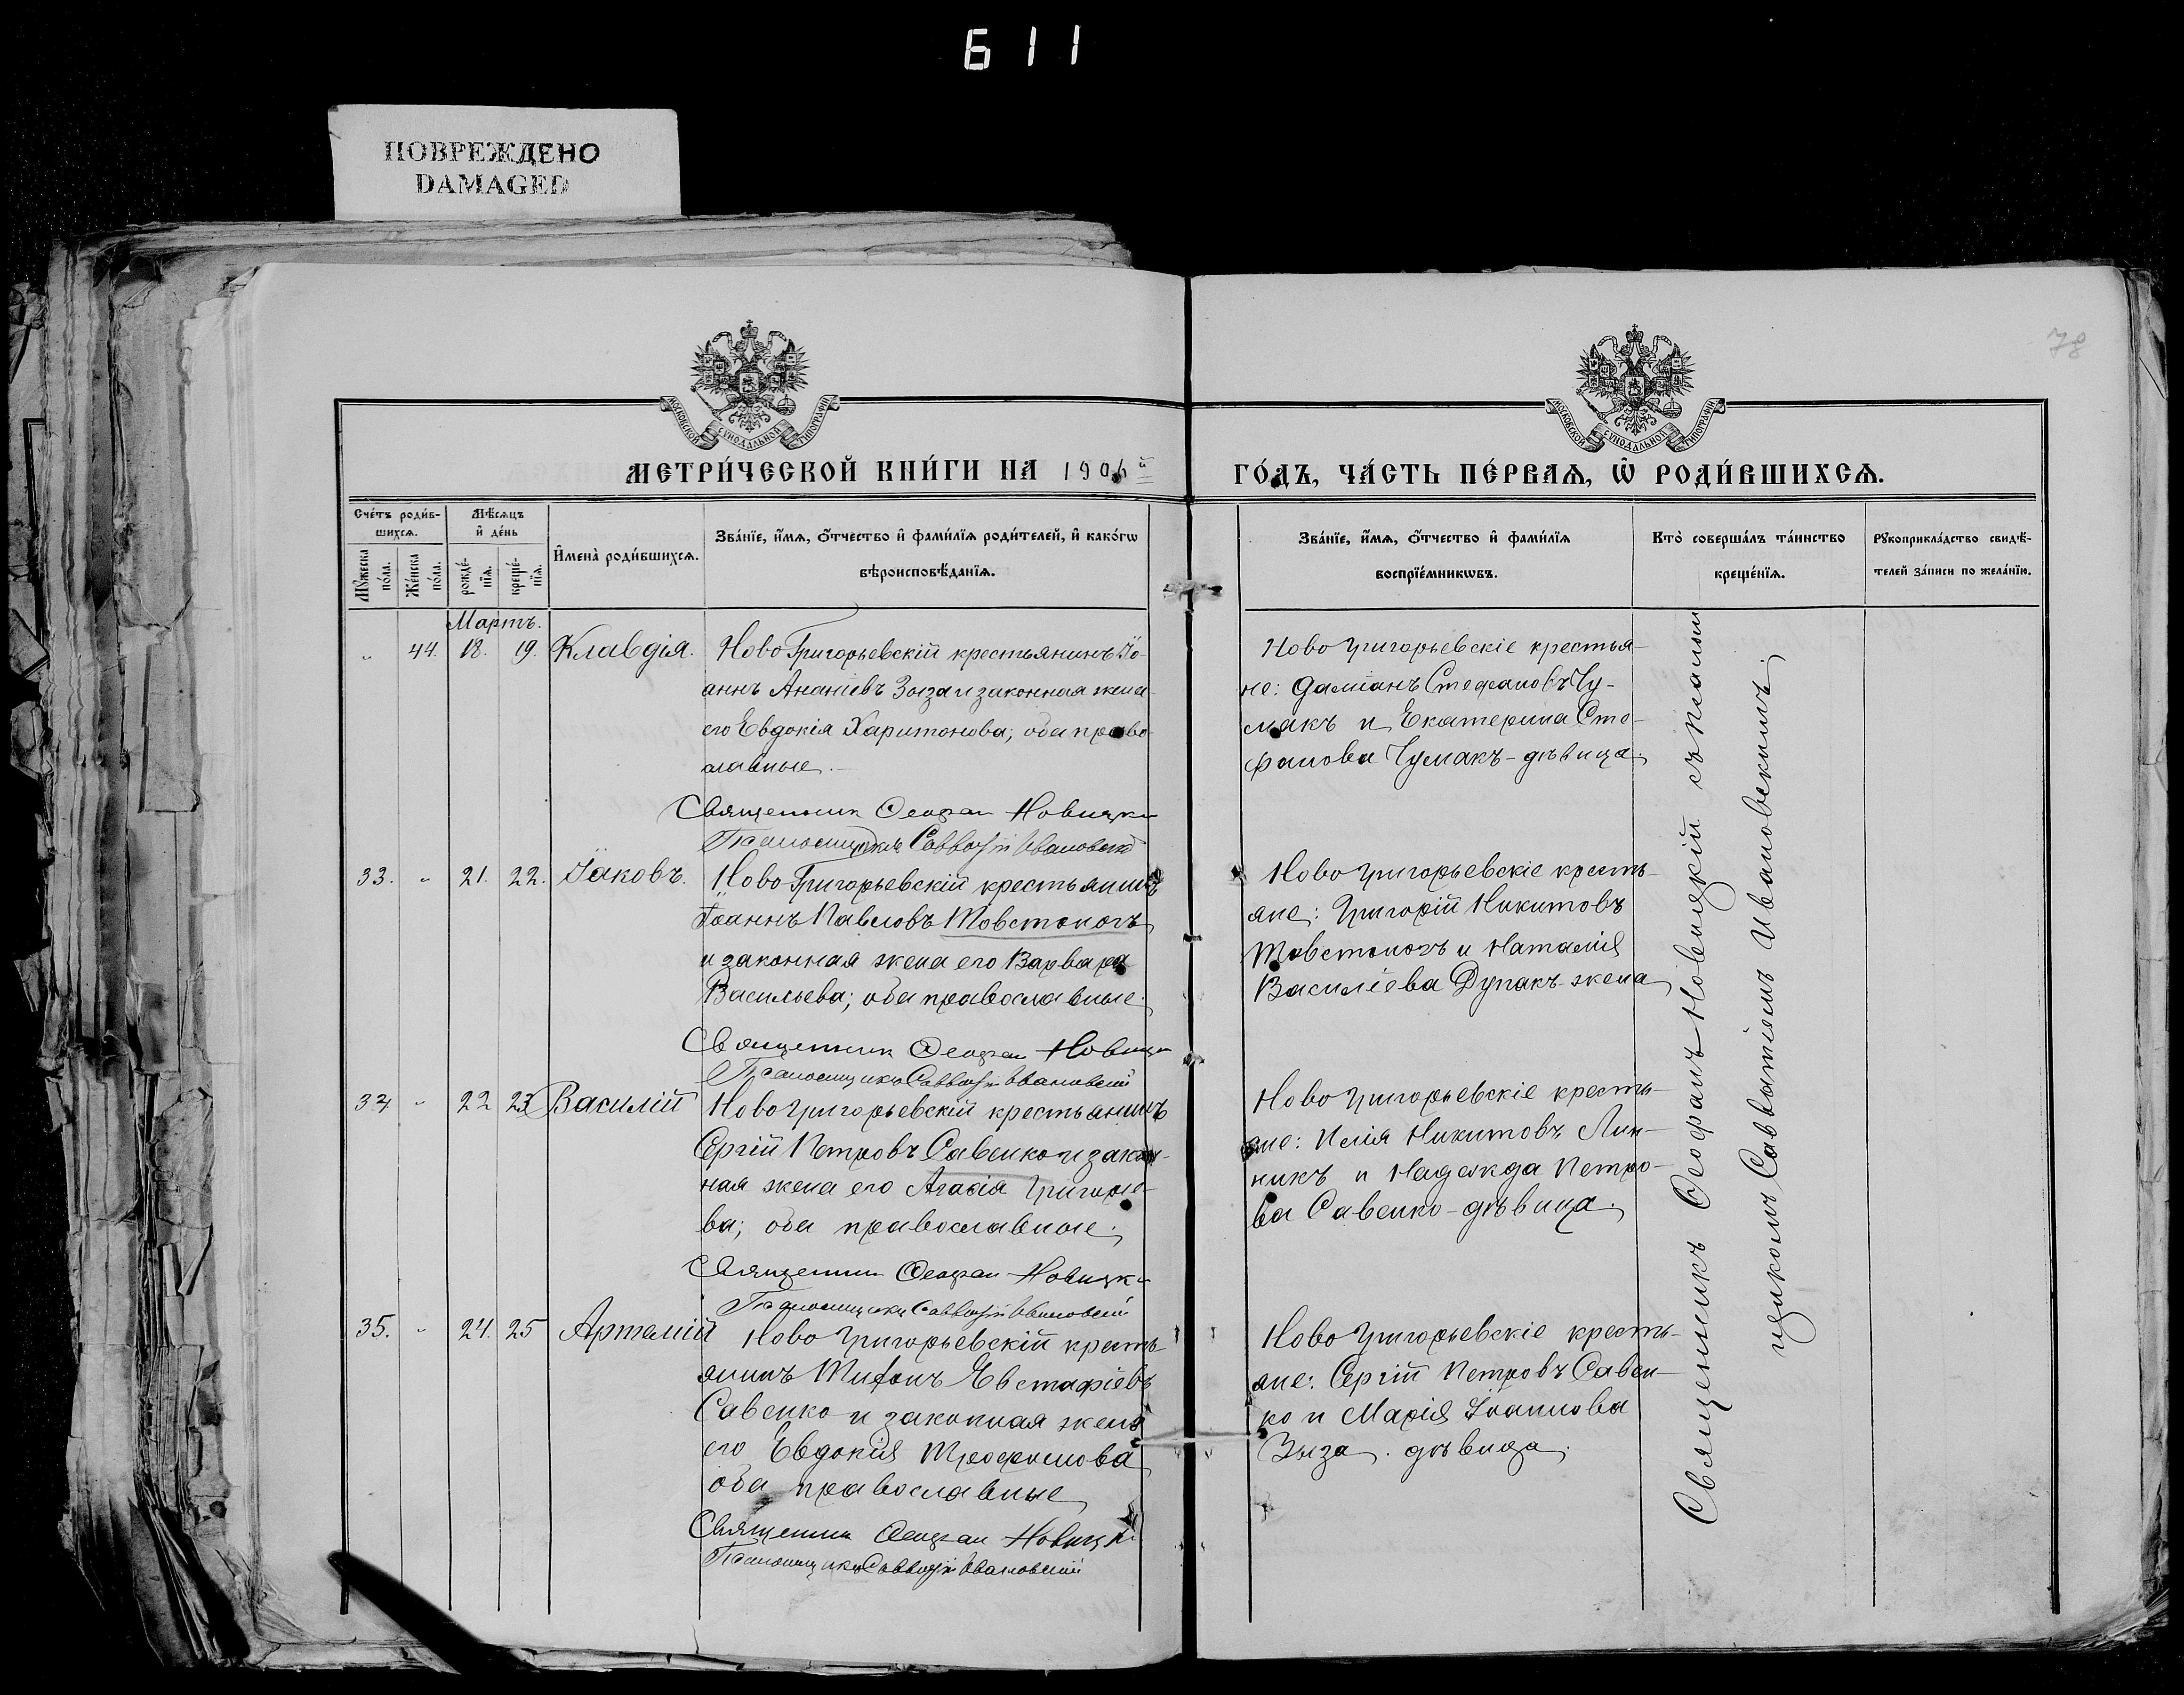 611
ПОВРЕЖДЕНО
DAMAGED
78
МОСКОВСКОЙ СѴНОДАЛЬНОЙ ТИПОГРАФІИ
МОСКОВСКОЙ СѴНОДАЛЬНОЙ ТИПОГРАФІИ
МЕТРИ́ЧЕСКОЙ КНИ́ГИ НА 190 й
ГО́ДЪ, ЧА́СТЬ ПЕ́РВАѦ, Ѽ РОДИ́ВШИХСѦ.
Сче́тъ роди́в-
шихсѧ.
Мꙋжеска по́ла.
Же́нска по́ла.
Мѣ́сѧцъ и҆ де́нь
рожде́-нїѧ.
креще́-нїѧ.
И҆мена̀ роди́вшихсѧ.
Зва́нїе, и҆́мѧ, о҆́тчество и҆ фами́лїѧ роди́телей, и҆ како́гѡ
вѣроисповѣ́данїѧ.
Зва́нїе, и҆́мѧ, о҆́тчество и҆ фами́лїѧ
воспрїе́мникѡвъ.
Кто̀ соверша́лъ та́инство
креще́нїѧ.
Рꙋкоприкла́дство свидѣ́-
телей за́писи по жела́нїю.
Мартъ.
„ 44. 18. 19. Клавдія.
Ново Григорьевскій крестьянинъ Іо-
аннъ Ананіевъ Зыза и законная жена
его Евдокія Харитонова; оба право-
славные.
Священник Феофан Новицки
Псаломщикъ Савватій Ивановскій
Ново Григорьевскіе крестья-
не: Даміанъ Стефановъ Чу-
макъ и Екатерина Сте-
фанова Чумакъ - дѣвица.
33. „ 21. 22. Іаковъ.
Ново Григорьевскій крестьянинъ
Іоаннъ Павловъ Товстоногъ
и законная жена его Варвара
Васильева; оба православные.
Священник Феофан Новицки
Псаломщикъ Савватій Ивановскій
Ново Григорьевскіе кресть-
яне: Григорій Никитовъ
Товстоногъ и Наталія
Василіева Дупакъ - жена
34 „ 22 23 Василій
Ново Григорьевскій крестьянинъ
Сергій Петровъ Савенко и закон-
ная жена его Агафія Григорье-
ва; оба православные.
Священник Феофан Новицки
Псаломщикъ Савватій Ивановскій
Ново Григорьевскіе кресть-
яне: Илія Никитовъ Лин-
никъ и Надежда Петро-
ва Савенко - дѣвица.
35. „ 24. 25 Артемій
Ново Григорьевскій кресть-
янинъ Тифонъ Евстафіевъ
Савенко и законная жена
его Евдокія Трофимова
оба православные
Священник Феофан Новицки
Псаломщикъ Савватій Ивановскій
Ново Григорьевскіе кресть-
яне: Сергій Петровъ Савен-
ко и Марія Іоаннова
Зыза. дѣвица.
Священникъ Феофанъ Новицкій съ псалом-
щикомъ Савватіемъ Ивановскимъ.